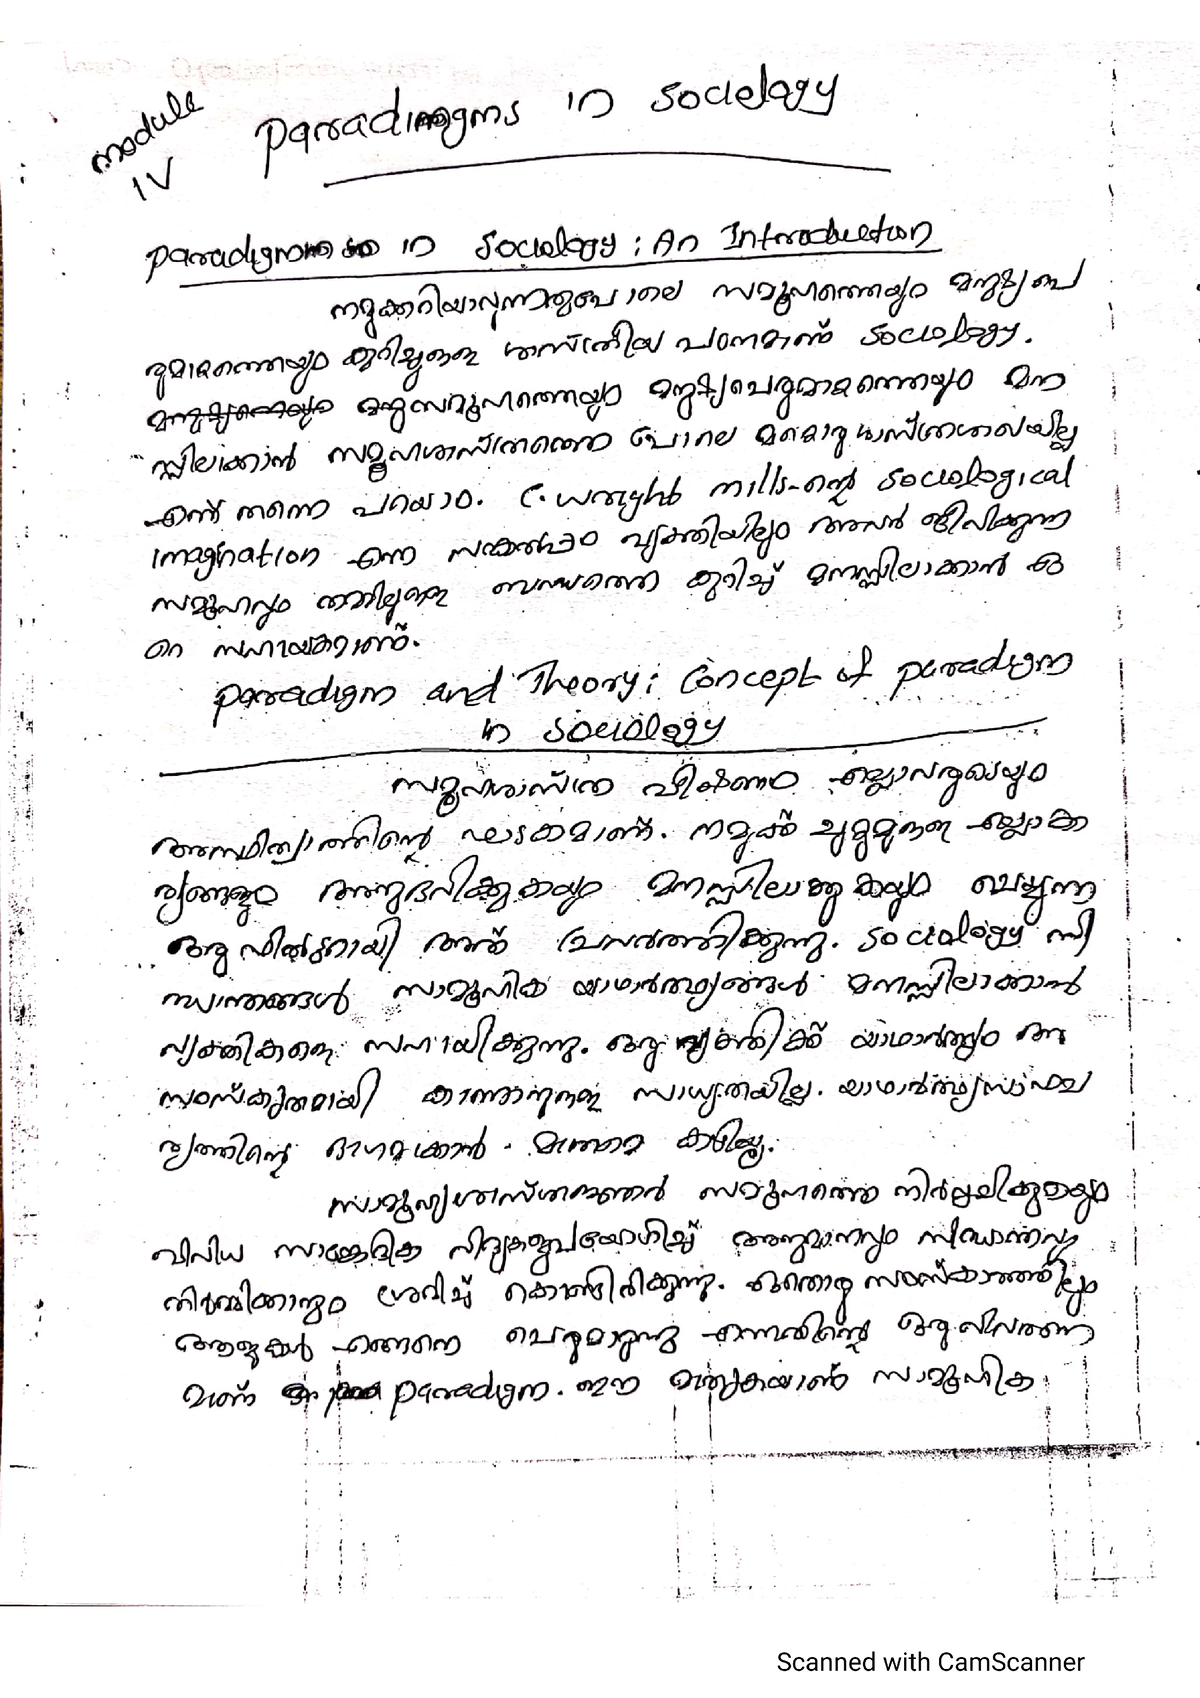 Module
IV
Paradigms in Sociology
Paradigm in Sociology : An Introduction
നമുക്കറിയാവുന്നതുപോലെ സമൂഹത്തെയും മനുഷ്യപെ
രുമാറ്റത്തെയും കുറിച്ചുള്ള ശാസ്ത്രീയ പഠനമാണ് Sociology.
മനുഷ്യസമൂഹത്തെയും മനുഷ്യപെരുമാറ്റത്തെയും മന
സ്സിലാക്കാൻ സമൂഹശാസ്ത്രത്തെ പോലെ മറ്റൊരു ശാസ്ത്രശാഖയില്ല
എന്ന് തന്നെ പറയാം. C. Wright Mills-ന്റെ Sociological
Imagination എന്ന സങ്കൽപ്പം വ്യക്തിയിലും അവർ ജീവിക്കുന്ന
സമൂഹവും തമ്മിലുള്ള ബന്ധത്തെ കുറിച്ച് മനസ്സിലാക്കാൻ ഏ
റെ സഹായകമാണ്.
Paradigm and Theory : Concept of Paradigm
in Sociology
സമൂഹശാസ്ത്ര വീക്ഷണം എല്ലാവരുടെയും
അസ്ഥിത്വത്തിന്റെ ഘടകമാണ്. നമുക്ക് ചുറ്റുമുള്ള എല്ലാകാ
ര്യങ്ങളും അനുഭവിക്കുകയും മനസ്സിലാക്കുകയും ചെയ്യുന്ന
ഒരു ഫിൽട്ടറായി അത് പ്രവർത്തിക്കുന്നു. Sociology സി
ദ്ധാന്തങ്ങൾ സാമൂഹിക യാഥാർത്ഥ്യങ്ങൾ മനസ്സിലാക്കാൻ
വ്യക്തികളെ സഹായിക്കുന്നു. ഒരു വ്യക്തിക്ക് യാഥാർത്ഥ്യം അ
സംസ്കൃതമായി കാണാനുള്ള സാധ്യതയില്ല.
ഭാഗമാകാൻ മാത്രമേ കഴിയൂ.
സാമൂഹ്യശാസ്ത്രജ്ഞർ സമൂഹത്തെ നിർവ്വചിക്കുകയും
വിവിധ സാങ്കേതിക വിദ്യകളുപയോഗിച്ച് അനുമാനവും സിദ്ധാന്തവും
നിർമ്മിക്കാനും ശ്രമിച്ച് കൊണ്ടിരിക്കുന്നു. ഏതൊരു സംസ്കാരത്തിലും
ആളുകൾ എങ്ങനെ പെരുമാറുന്നു എന്നതിന്റെ ഒരു വിവരണ
മാണ് Paradigm. ഈ മാതൃകയാണ് സാമൂഹിക
Scanned with CamScanner